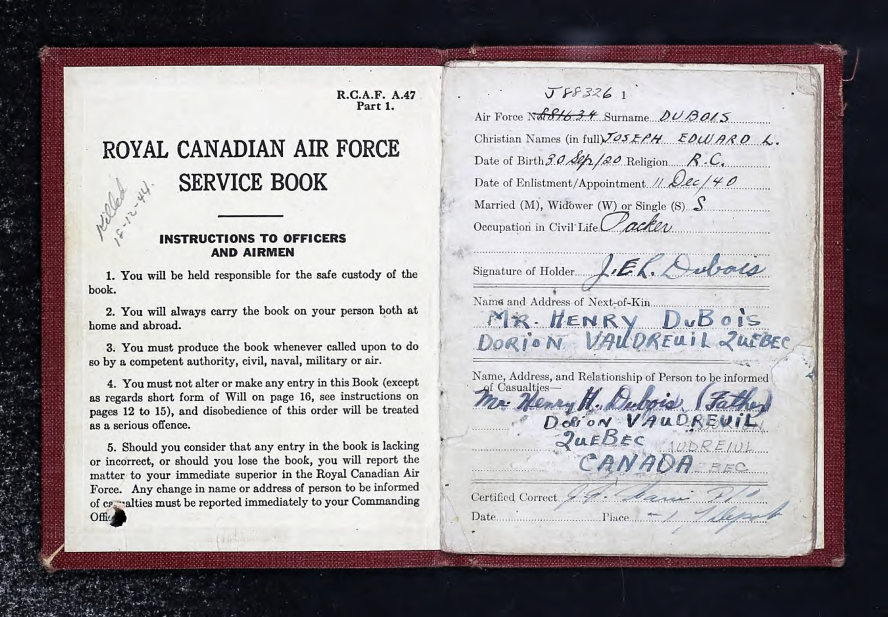 R.C.A.F. A.47
Part 1.
ROYAL CANADIAN AIR FORCE
SERVICE BOOK
Killed
18-12-44.
INSTRUCTIONS TO OFFICERS
AND AIRMEN
1. You will be held responsible for the safe custody of the
book.
2. You will always carry the book on your person both at
home and abroad.
3. You must produce the book whenever called upon to do
so by a competent authority, civil, naval, military or air.
4. You must not alter or make any entry in this Book (except
as regards short form of Will on page 16, see instructions on
pages 12 to 15), and disobedience of this order will be treated
as a serious offence.
5. Should you consider that any entry in the book is lacking
or incorrect, or should you lose the book, you will report the
matter to your immediate superior in the Royal Canadian Air
Force. Any change in name or address of person to be informed
of casualties must be reported immediately to your Commanding
J88326 1
Air Force Surname DUBOIS
Christian Names (in full) JOSEPH EDWARD L.
Date of Birth 30 Sep/20 Religion R.C.
Date of Enlistment/Appointment 11 Dec/40
Married (M), Widower (W) or Single (S) S
Occupation in Civil Life Packer
Signature of Holder J.E.L. Dubois
Name and Address of Next-of-Kin
MR. HENRY DuBois
DORION VAUDREUIL QUEBEC
Name, Address, and Relationship of Person to be informed
of Casualties—
Mr. Henry H. Dubois (Father)
DORION VAUDREUIL
QUEBEC
CANADA
Certified Correct
Date Place